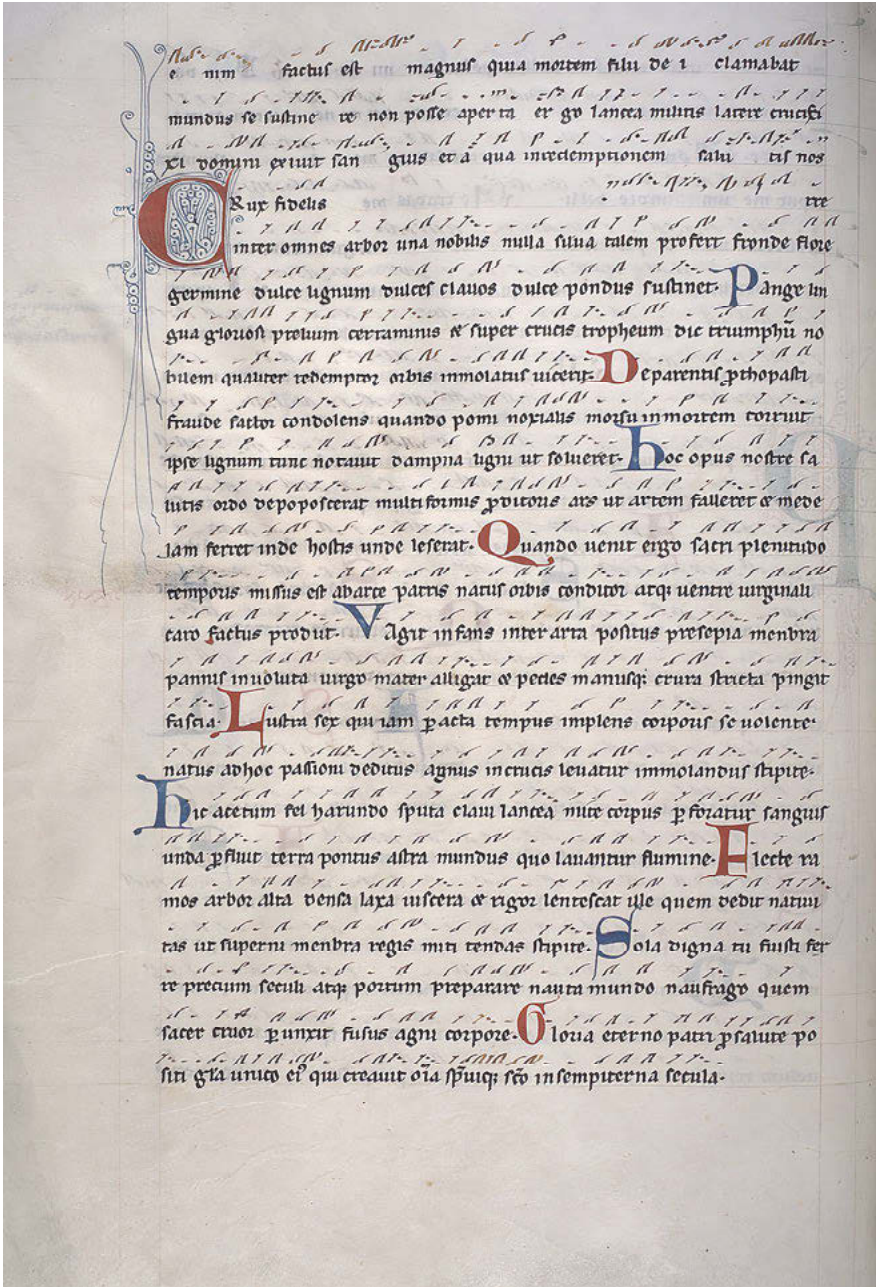 e nim factus est magnus quia mortem filii de i clamabat
mundus se sustine re non posse aper ta er go lancea militis latere crucifi
xi domini exiuit san guis et a qua in redemptionem salu tis nos
CRux fidelis tre
inter omnes arbor una nobilis nulla silua talem profert fronde flore
germine dulce lignum dulces clauos dulce pondus sustinet. Pange lin
gua gloriosi prelium certaminis & super crucis tropheum dic triumphū no
bilem qualiter redemptor orbis inmolatus uicerit. De parentis ꝓthoplasti
fraude factor condolens quando pomi noxialis morsu in mortem corruit
ipse lignum tunc notauit dampna ligni ut solueret. hoc opus nostre sa
lutis ordo depoposcerat multiformis ꝓditoris ars ut artem falleret & mede
lam ferret inde hostis unde leserat. Quando uenit ergo sacri plenitudo
temporis missus est ab arce patris natus orbis conditor atqꝫ uentre uirginali
caro factus prodiit. Vagit infans inter arta positus presepia menbra
pannis inuoluta uirgo mater alligat & pedes manusqꝫ crura stricta pingit
fascia. Lustra sex qui iam ꝑacta tempus implens corporis se uolente.
natus ad hoc passioni deditus agnus in crucis leuatur immolandus stipite.
hic acetum fel harundo sputa claui lancea mite corpus ꝑforatur sanguis
unda ꝓfluit terra pontus astra mundus quo lauantur flumine. Flecte ra
mos arbor alta densa laxa uiscera & rigor lentescat ille quem dedit natiui
tas ut superni menbra regis miti tendas stipite. Sola digna tu fuisti fer
re precium seculi atqꝫ portum preparare nauta mundo naufrago quem
sacer cruor ꝑunxit fusus agni corpore. Gloria eterno patri ꝓ salute po
siti gr̄a unico eiꝰ qui creauit oīa sp̄uiqꝫ sc̄o in sempiterna secula.